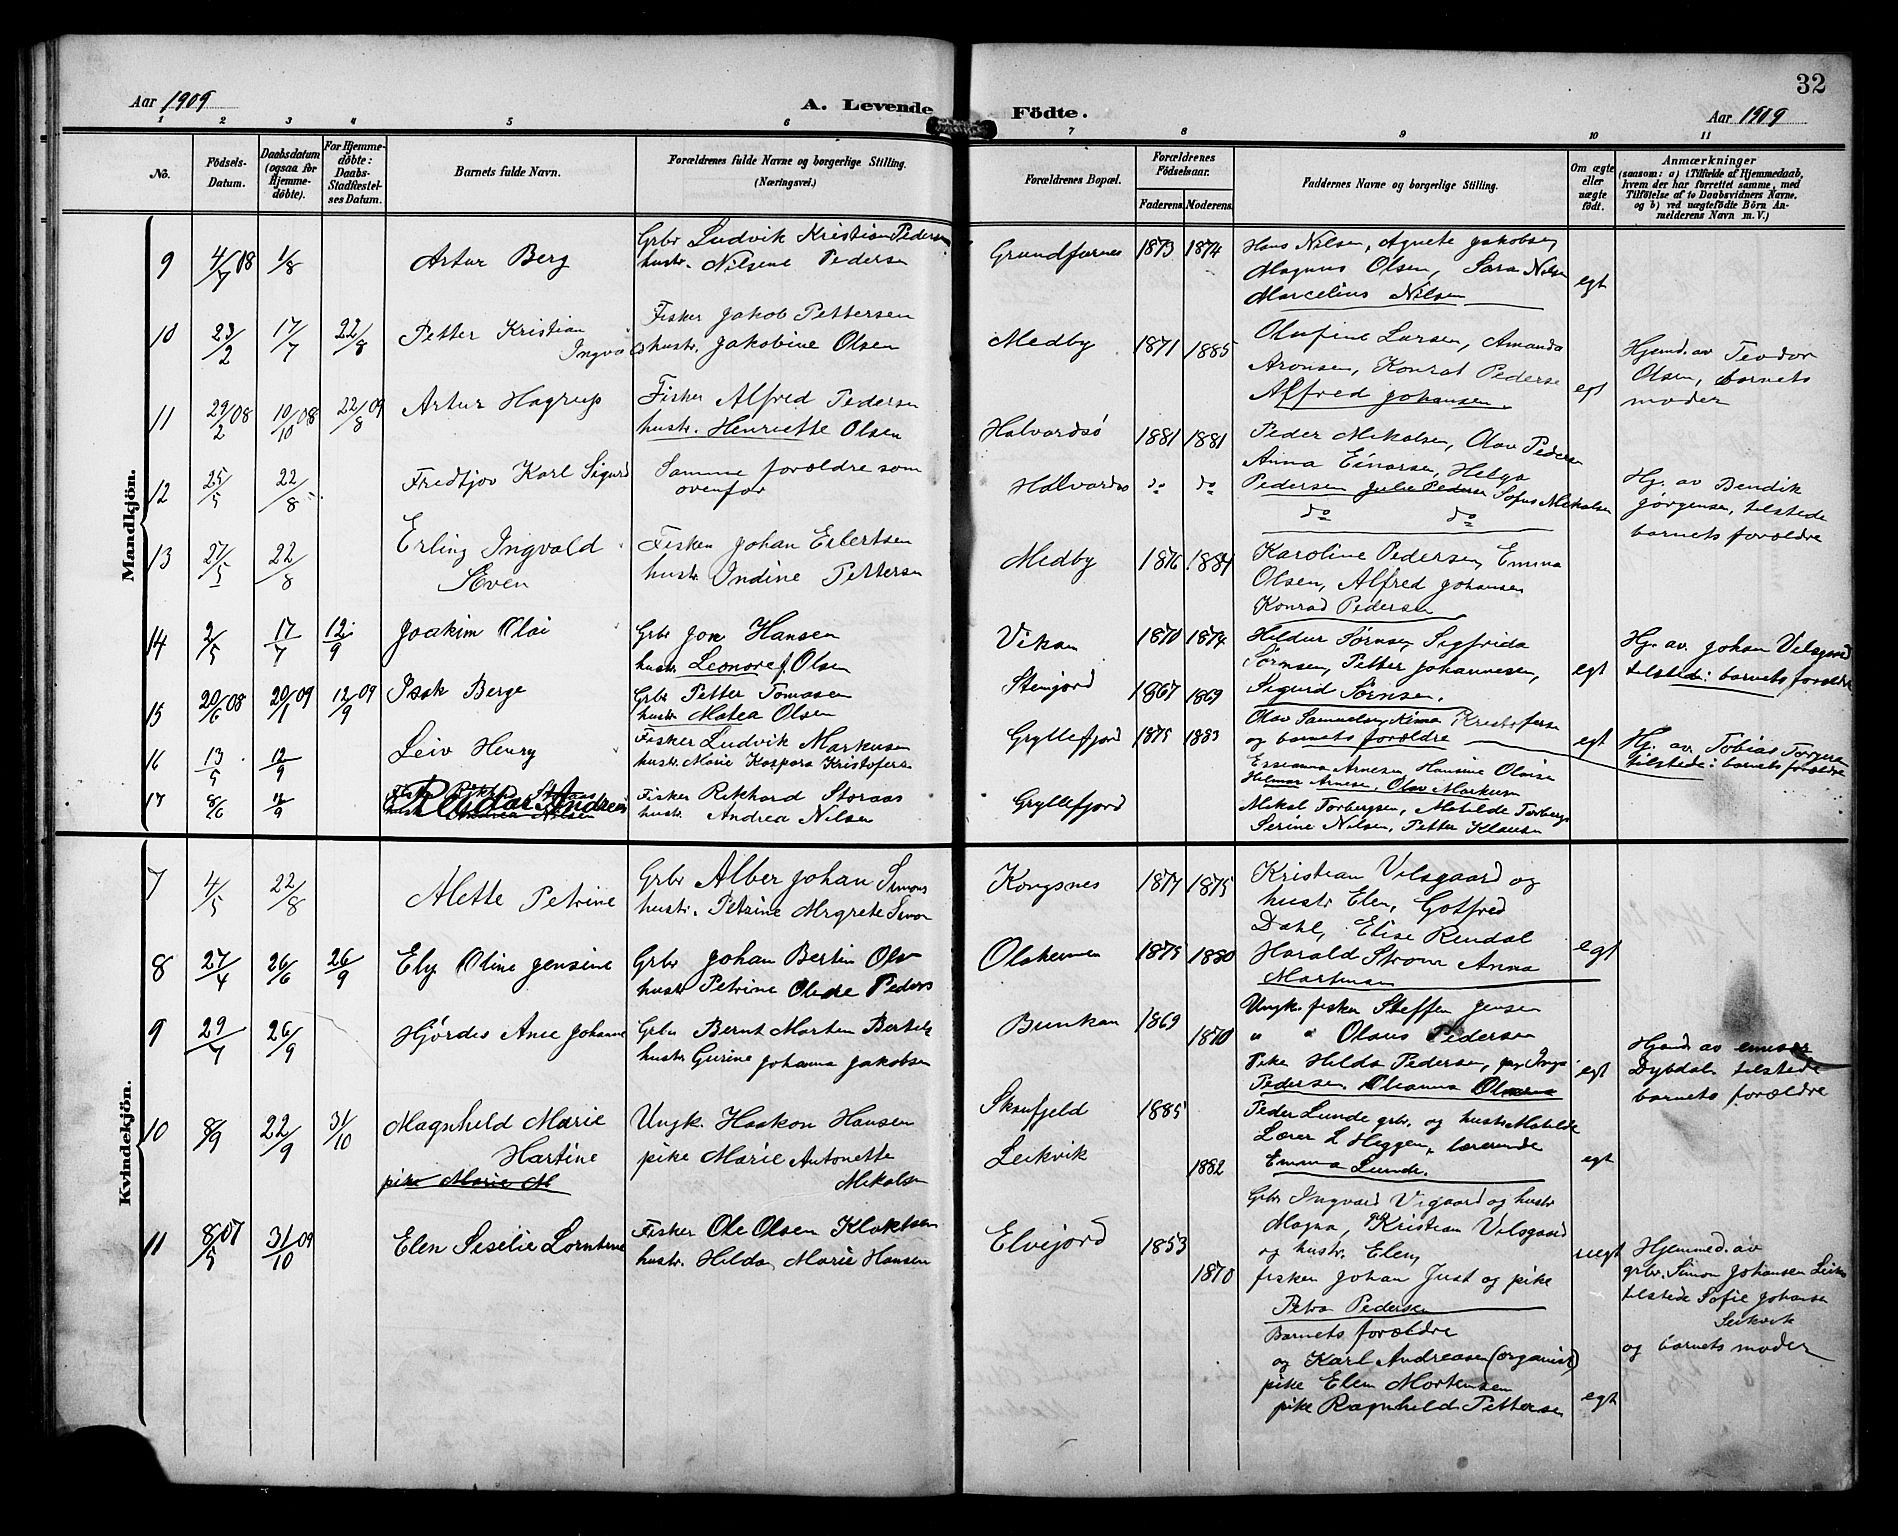 32
Aar 1909
A. Levende Födte.
Aar 1909
1 2 3 4 5 6 7 8 9 10 11
No.
Födsels-Datum.
Daabsdatum (ogsaa for Hjemmedöbte).
For Hjemmedöbte: Daabs-Stadfæstelses Datum.
Barnets fulde Navn.
Forældrenes fulde Navne og borgerlige Stilling. (Næringsvei.)
Forældrenes Bopæl.
Forældrenes Födselsaar.
Faderens. Moderens.
Faddernes Navne og borgerlige Stilling.
Om ægte eller uægte födt.
Anmærkninger
(saasom: a) i Tilfælde af Hjemmedaab, hvem der har forrettet samme, med Tilföielse af to Daabsvidners Navne, og b) ved uægtefödte Börn Anmelderens Navn m. V.)
Mandkjön.
9 4/7 08 1/8 Artur Berg
Grbr Ludvik Kristian Pedersen
hustr. Nilsene Pedersen
Grundfarnes 1873 1874
Hans Nilsen, Agnete Jakobsen
Magnus Olsen, Sara Nilsen
Marcelius Nilsen
egt
10 23/2 17/7 22/8 Petter Kristian
Ingvald
Fisker Jakob Pettersen
hustr. Jakobine Olsen
Medby 1871 1885
Olufine Larsen, Amanda
Aronsen, Konrat Pederse
Alfred Johansen.
egt
Hjemd. av Teodor
Olsen, barnets
moder
11 29/2 08 10/10 08 22/8 09 Artur Hagrup
Fisker Alfred Pedersen
hustr. Henriette Olsen
Halvardsö 1881 1881
Peder Mikalsen, Olav Peder
Anna Einarsen, Helga
Pedersen Julie Pedersen Sofus Mikalsen
12 25/5 22/8 Fredtjov Karl Sigurd
Samme forældre som
ovenfor
Halvardsö do do
do do
Hj. av Bendik
Jørgensen, tilstede
barnets forældre
13 27/5 22/8 Erling Ingvald
Søven
Fisker Johan Eilertsen
hustr Indine Pettersen
Medby 1876 1884
Karoline Pedersen, Emma
Olsen, Alfred Johansen
Konrad Pedersen
14 2/5 17/7 12/9 Joakim Olai
Grbr Jon Hansen
hustr Leonore J Olsen
Vikan 1870 1874
Hildur Sørnsen, Sigfrida
Sørnsen, Petter Johannesen,
Sigurd Sørnsen.
egt
Hj. av. Johan Velsgaard
tilstede: barnets forældre
15 20/6 08 20/1 09 12/9 09 Isak Berge
Grbr Petter Tomasen
hustr Matea Olsen
Stenjord 1867 1869
Olav Samuelsen, Kristofersen
og barnets forældre
egt
Hj. av. Tobias Torgersen
tilstede: barnets forældre
16 13/5 12/9 Leiv Henry
Fisker Ludvik Markusen
hustr. Marie Kaspara Kristofers
Gryllefjord 1875 1883
Arnesen, Hansine Olaisen
Helmar Arnesen, Olav Markusen
17 8/6 12/9 Reidar Andreas
Fisker Rikhard Storaas
hustr. Andrea Nilsen
Gryllefjord
Mikal Torbergsen, Matilde Torbergs
Serine Nilsen, Petter Klausen
Kvindekjön.
7 4/5 22/8 Alette Petrine
Grbr Alber Johan Simons
hustr. Petrine Mrgrete Simon
Kongsnes 1877 1875
Kristian Velsgaard og
hustr Elen, Gotfred
Dahl, Elise Rendal
8 27/4 26/6 26/9 Ely Oline Jensine
Grbr Johan Bertin Ols
hustr Petrine Olede Peders
1875 1880
Harald Strøm Anna
Martinsen
egt
9 29/7 26/9 Hjördis Anie Johanne
Grbr Bernt Morten Bertels
hustr Gurine Johanna Jakobsen
Bunkan 1869
1870
Ungk. fisker Steffen Jensen
" " Olaus Pedersen
Pike Hilda Pedersen, Inga
Pedersen Oleanna
egt
Hjemd. av
Dybdal tilstede
barnets forældre
10 8/9 22/9 31/10 Magnhild Marie
Hartine
pike Marie M
Ungk. Haakon Hansen
pike Marie Antonette
Mikalsen
Skaufjeld
Leikvik
1885
1882
Peder Lunde grbr. og hustr. Matilde
Lærer L Heggen, lærerinde
Emma Lunde.
egt
11 8/5 07 31/10 09 Elen Siselie Lorntine
Fisker Ole Olsen Klaktsen
hustr. Hilda Marie Hansen
Elvejord 1853
1870
Grbr Ingvard Vigaard og hustr
Magna, Kristian Velsgaard
og hustr. Elen,
fisker Johan Just og pike
Petra Pedersen
uegt
Hjemmed. av
grbr. Simon Johansen Leikv
tilstede Sofie Johansen
Leikvik
og barnets moder
Barnets forældre
og Karl Andreasen (organist)
pike Elen Mortensen
pike Ragnhild Pettersen
egt